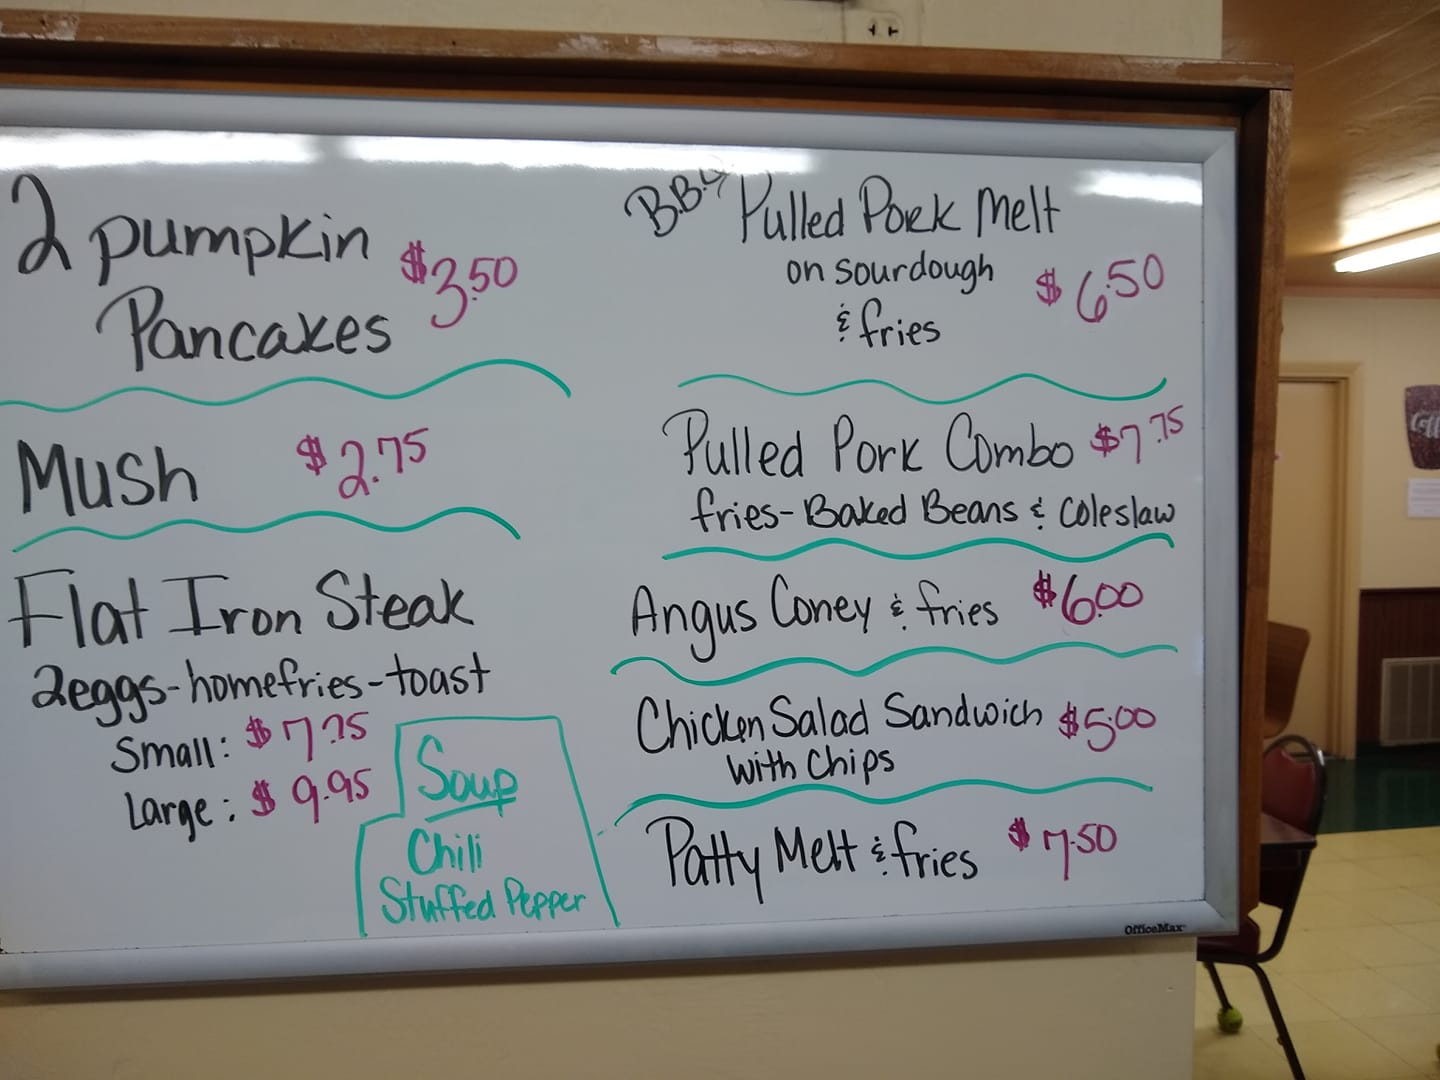 2 pumpkin
Pancakes $3.50
Mush $2.75
Flat Iron Steak
2eggs-homefries-toast
Small: $7.75
Large: $9.95
Soup
Chili
Stuffed Pepper
B.B.Q Pulled Pork Melt
on sourdough $6.50
& fries
Pulled Pork Combo $7.75
fries-Baked Beans & coleslaw
Angus Coney & fries $6.00
Chicken Salad Sandwich $5.00
with Chips
Patty Melt & fries $7.50
OfficeMax